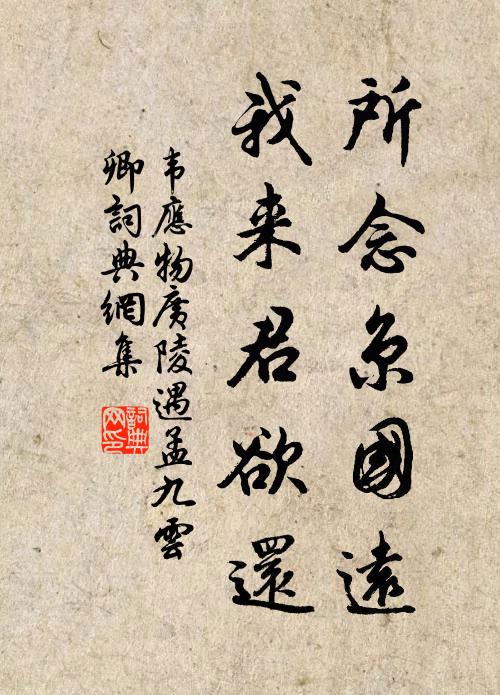 所念京國遠
我来君欲還
韦應物廣陵遇孟九雲
卿詞典網集
詞典
网印